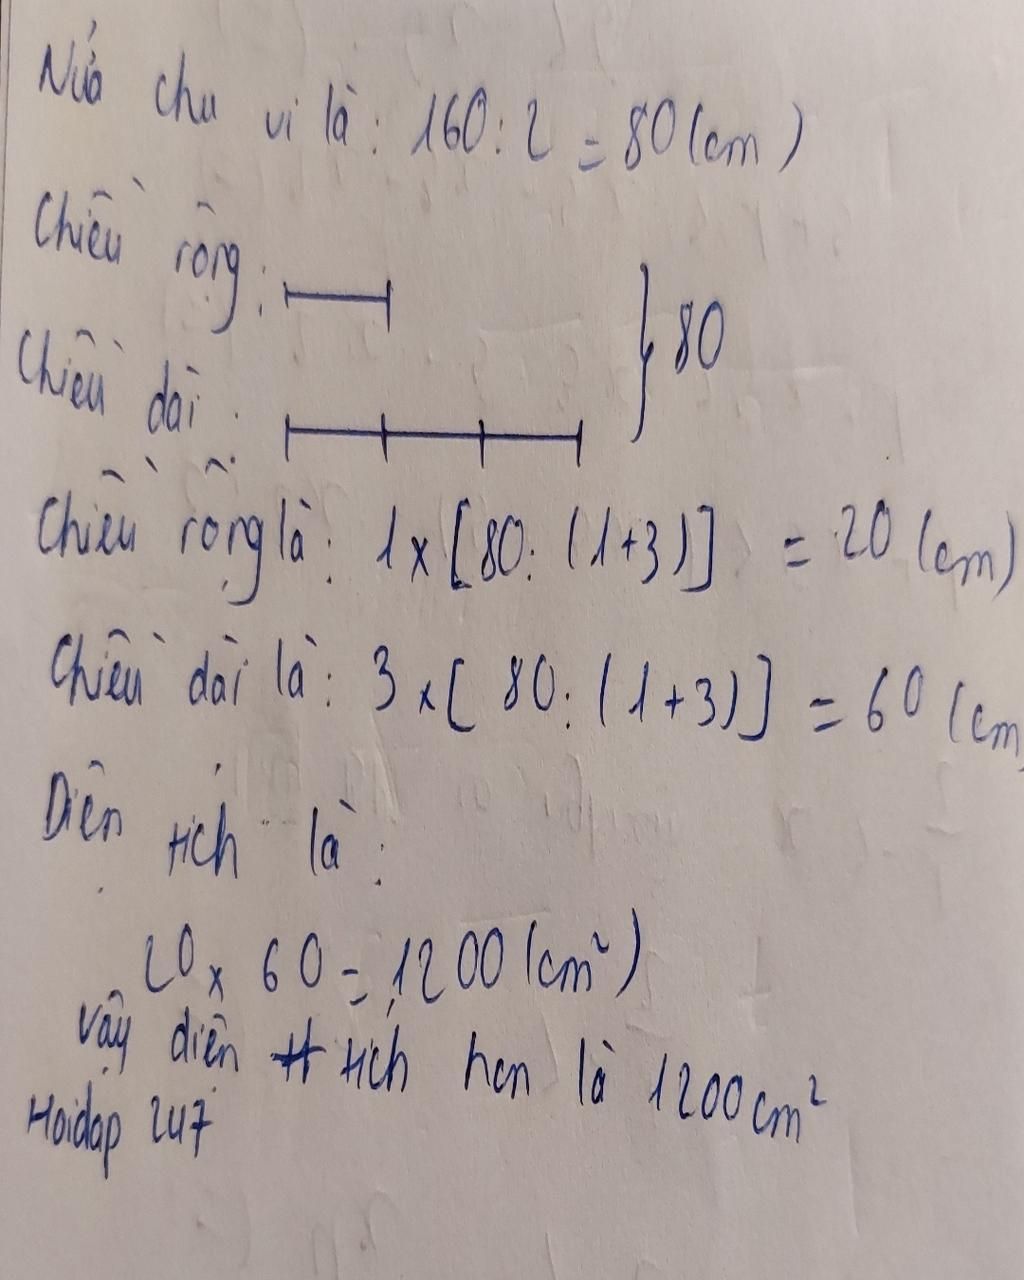 Nửa chu vi là: 160:2 = 80(cm)
Chiều rộng:
80
Chiều dài:
Chiều rộng là: 1x[80:(1+3)] = 20 (cm)
Chiều dài là: 3x[80:(1+3)] = 60 (cm)
Diện tích là:
20 x 60 = 1200(cm²)
Vậy diện tích hcn là 1200cm²
Hoidap 247